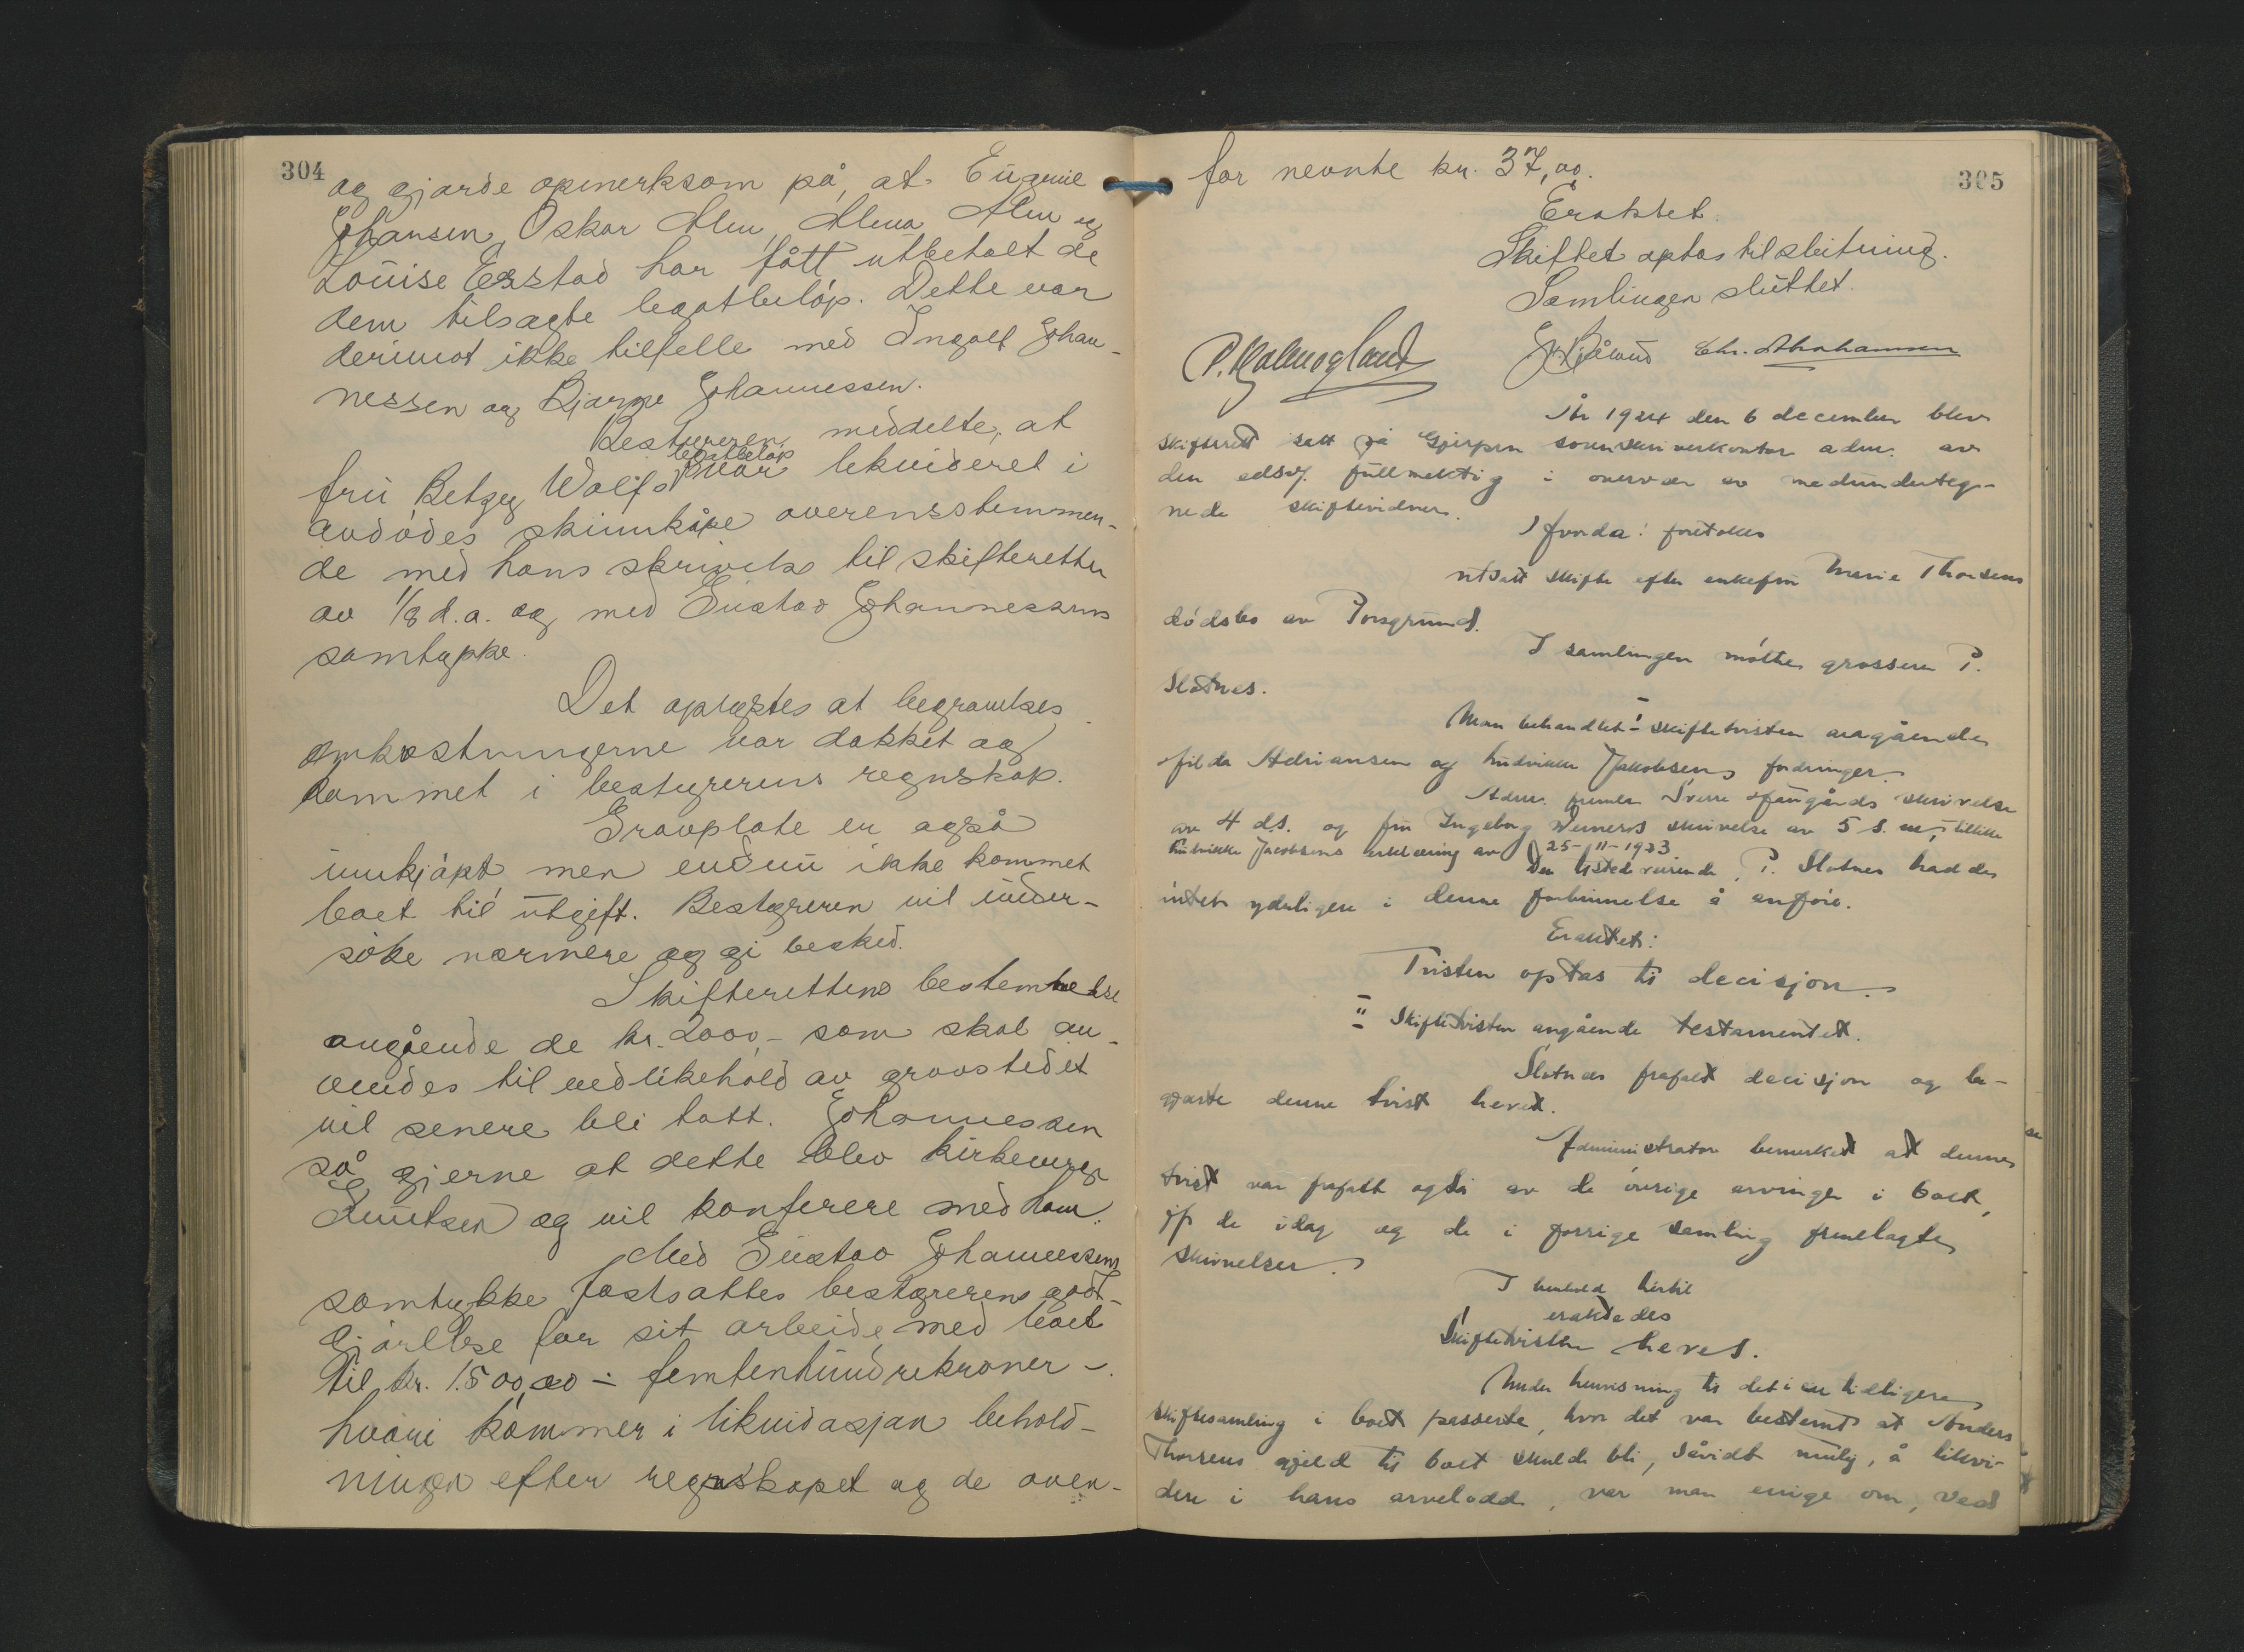 304
og gjorde opmerksom på, at Eugenie
Johansen, Oskar Alm, Alma Alm og
Louise Erstad har fått utbetalt de
dem tilsagte legatbeløp. Dette var
derimot ikke tilfelle med Ingolf Johan-
nessen og Bjarne Johannessen.
Bestyreren meddelte, at
legatbeløp
fru Betzy Wolfs var likvideret i
avdødes skinnkåpe overensstemmen-
de med hans skrivelse til skifteretten
av 1/8 d.a. og med Gustav Johannessens
samtykke.
Det oplystes at begravelses
omkostningerne var dekket og
kommet i bestyrerens regnskap.
Gravplate er også
innkjøpt men endnu ikke kommet
boet til utgift. Bestyreren vil under-
søke nærmere og gi besked.
Skifterettens bestemmelse
angående de kr. 2000,- som skal an-
vendes til vedlikehold av gravstedet
vil senere bli tatt. Johannessen
så gjerne at dette blev kirkeverge
Knutsen og vil konferere med ham.
Med Gustav Johannessens
samtykke fastsattes bestyrerens godt-
gjørelse for sit arbeide med boet
til kr. 1500,00 - femtenhundrekroner -
hvori kommer i likvidasjon behold-
ningen efter regnskapet og de oven-
305
for nevnte kr. 37,00.
Eraktet:
Skiftet optas til slutning.
Samlingen sluttet.
Chr. Abrahamsen
År 1924 den 6 december blev
skifterett satt på Gjerpen sorenskriverkontor adm. av
den edsv. fullmektig i overvær av medunderteg-
nede skiftevidner.
Hvorda: foretokes
utsatt skifte efter enkefru Marie Thorsens
dødsbo av Porsgrund.
I samlingen møtte grosserer P.
Slotnes.
I
Man behandlet: skiftetvisten angående
Hilda Adriansen og Ludvikke Jakobsens fordringer.
Adm. fremla Sverre skrivelse
av 4 ds. og fru Ingeborg Werners skrivelse av 5 s. m., tillike
Ludvikke Jacobsens erklæring av 25-11-1923
Den tilstedeværende P. Slotnes hadde
intet yderligere i denne forbinnelse å anføre.
Eraktet:
Tvisten optas til decisjon.
II Skiftetvisten angående testamentet.
Slotnes frafalt decisjon og be-
gjærte denne tvist hevet.
Administrator bemerket at denne
tvist var frafalt også av de øvrige arvinger i boet,
jfr de idag og de i forrige samling fremlagte
skrivelser.
I henhold hertil
eraktedes
Skiftetvisten heves.
Under henvisning til det i en tidligere
skiftesamling i boet passerte, hvor det var bestemt at Anders
Thorsens gjeld til boet skulde bli, såvidt mulig, å likvi-
dere i hans arvelodd, var man enige om, ved